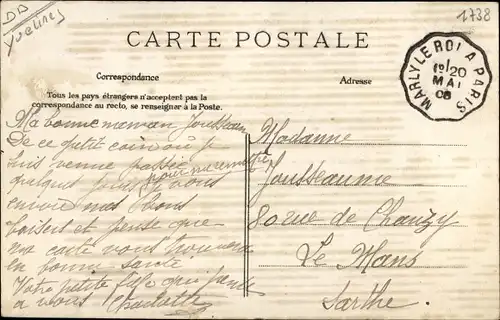 DD
Yvelines
1738
CARTE POSTALE
MARLY LE ROI A PARIS
1º/20
MAI
08
Correspondance
Adresse
Tous les pays étrangers n'acceptent pas la
correspondance au recto, se renseigner à la Poste.
Ma bonne maman Jousseaume
De ce petit coin où je
suis venue passée
quelques jours pour me remettre
je vous
envoie mes bons
baisers et pense que
ma carte vous trouvera
en bonne santé
Votre petite fille qui pense
à vous Charlotte
Madame
Jousseaume
80 rue de Chanzy
Le Mans
Sarthe.